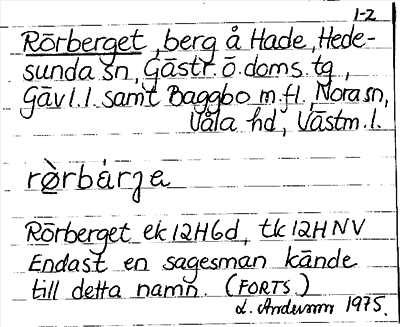 1-2
Rörberget, berg å Hade, Hede-
sunda sn, Gästr. ö. doms. tg,
Gävl. l. samt Baggbo m.fl., Nora sn,
Våla hd, Västm. l.
rø̀rbárja
Rörberget ek 12H6d, tk 12H NV
Endast en sagesman kände
till detta namn. (FORTS.)
L. Anderson 1975.